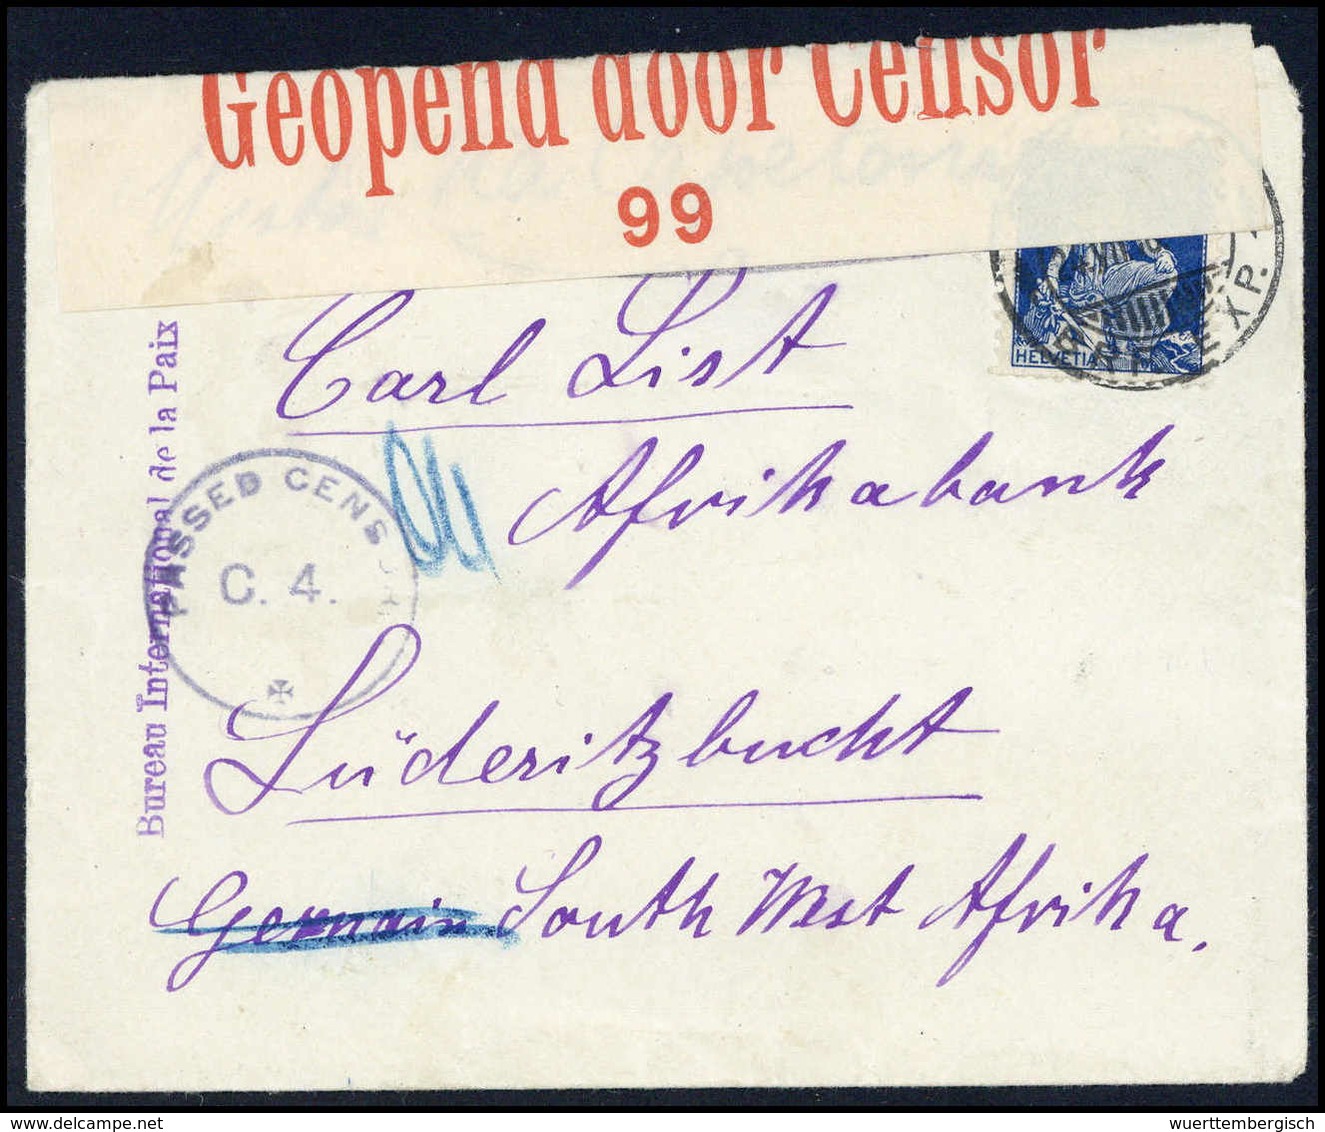 Geopend door Censor
99
HELVETIA
EXP.
Carl List
Afrikabank
Bureau International de la Paix
PASSED CENSOR
C. 4.
Lüderitzbucht
German South West Afrika.
delcampe.net
wuerttembergisch